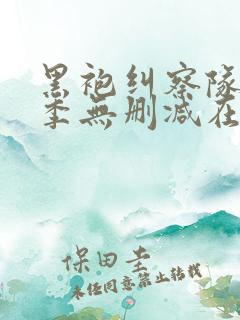 黑袍纠察队
季無删减在
保田圭
未经同意禁止转载